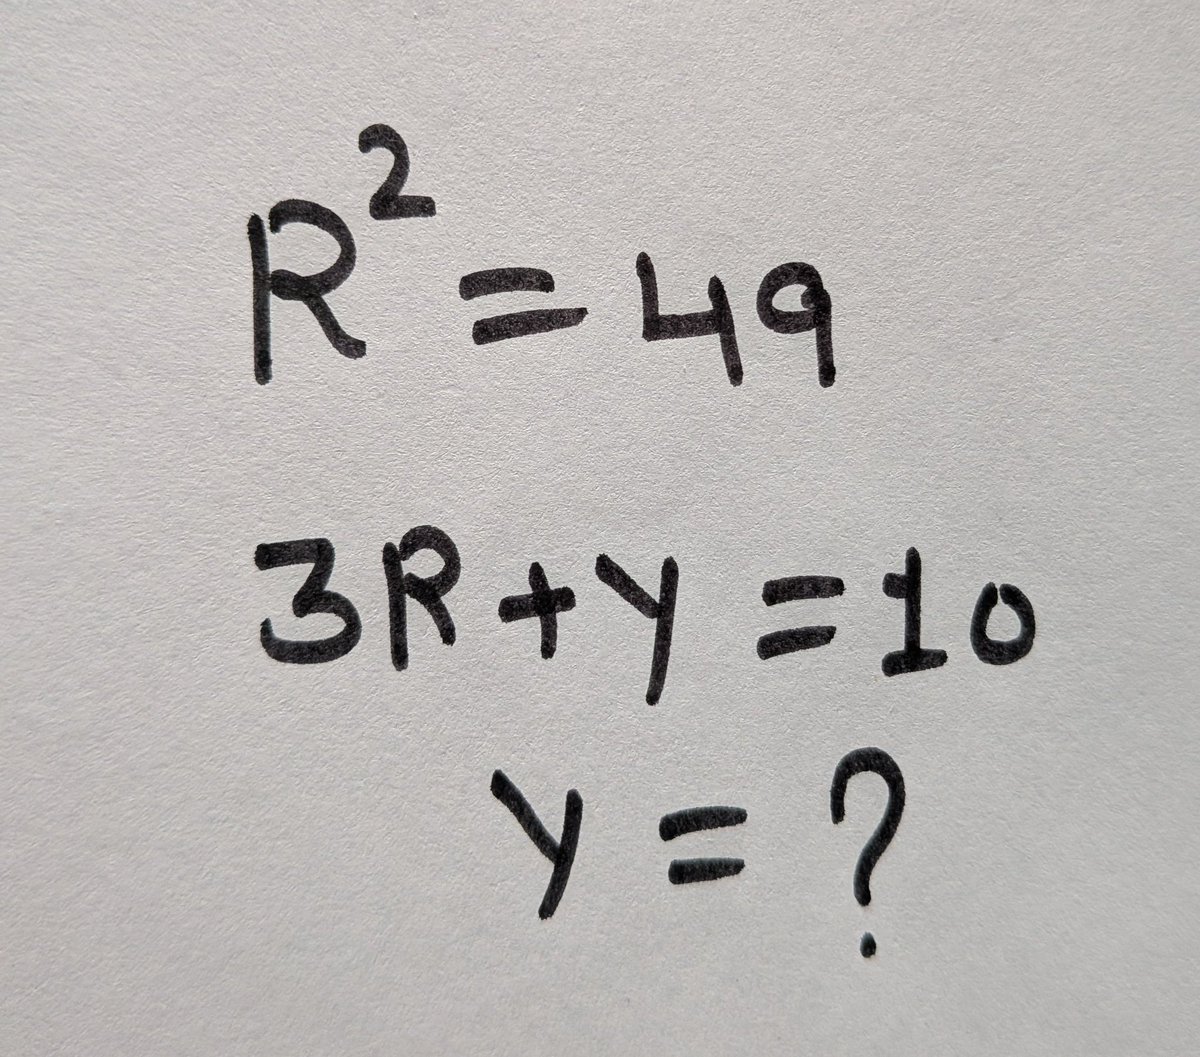 R² = 49
3R + y = 10
y = ?